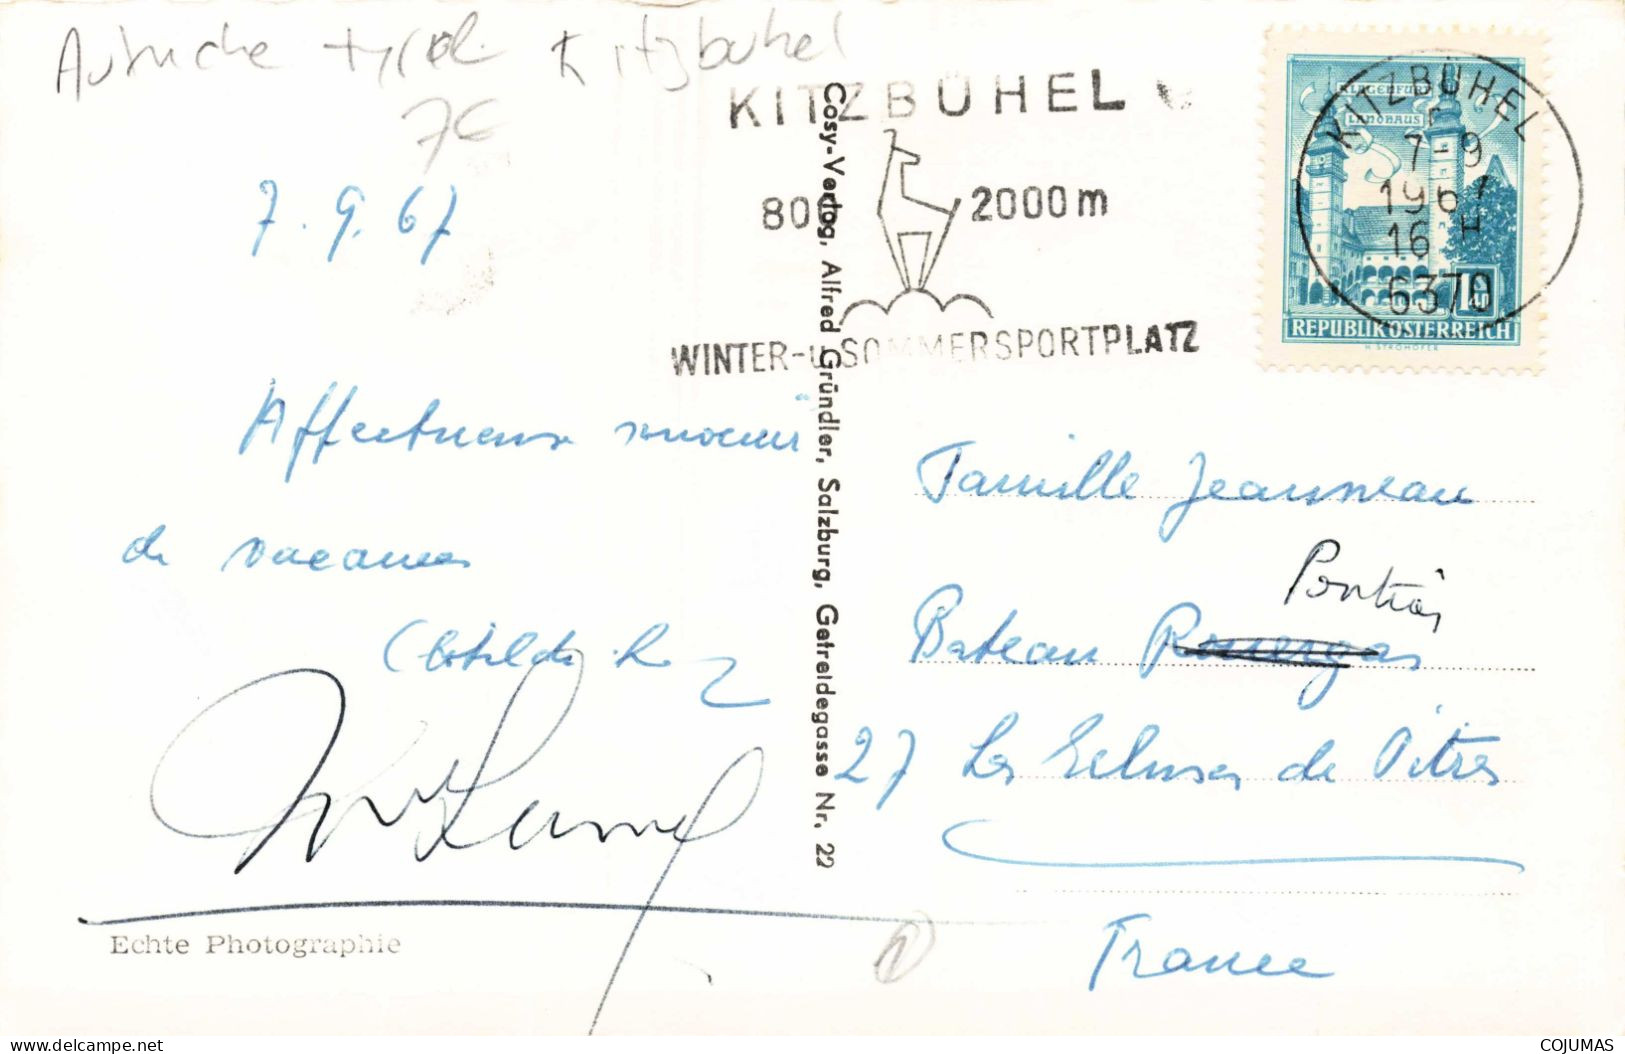 Autriche tyrol Kitzbuhel
7€
KITZBÜHEL
800 2000 m
WINTER-u. SOMMERSPORTPLATZ
KLAGENFURT
LANDHAUS
REPUBLIK ÖSTERREICH
H. STROHOFER
KITZBÜHEL
7-9
1967
16 H
6370
7.9.67
Affectueux souvenir
de vacances
Clotilde
Cosy-Verlag, Alfred Gründler, Salzburg, Getreidegasse Nr. 22
Famille Jeanneau
Bateau
27 Les Ecluses de Vitres
France
Echte Photographie
1
COJUMAS